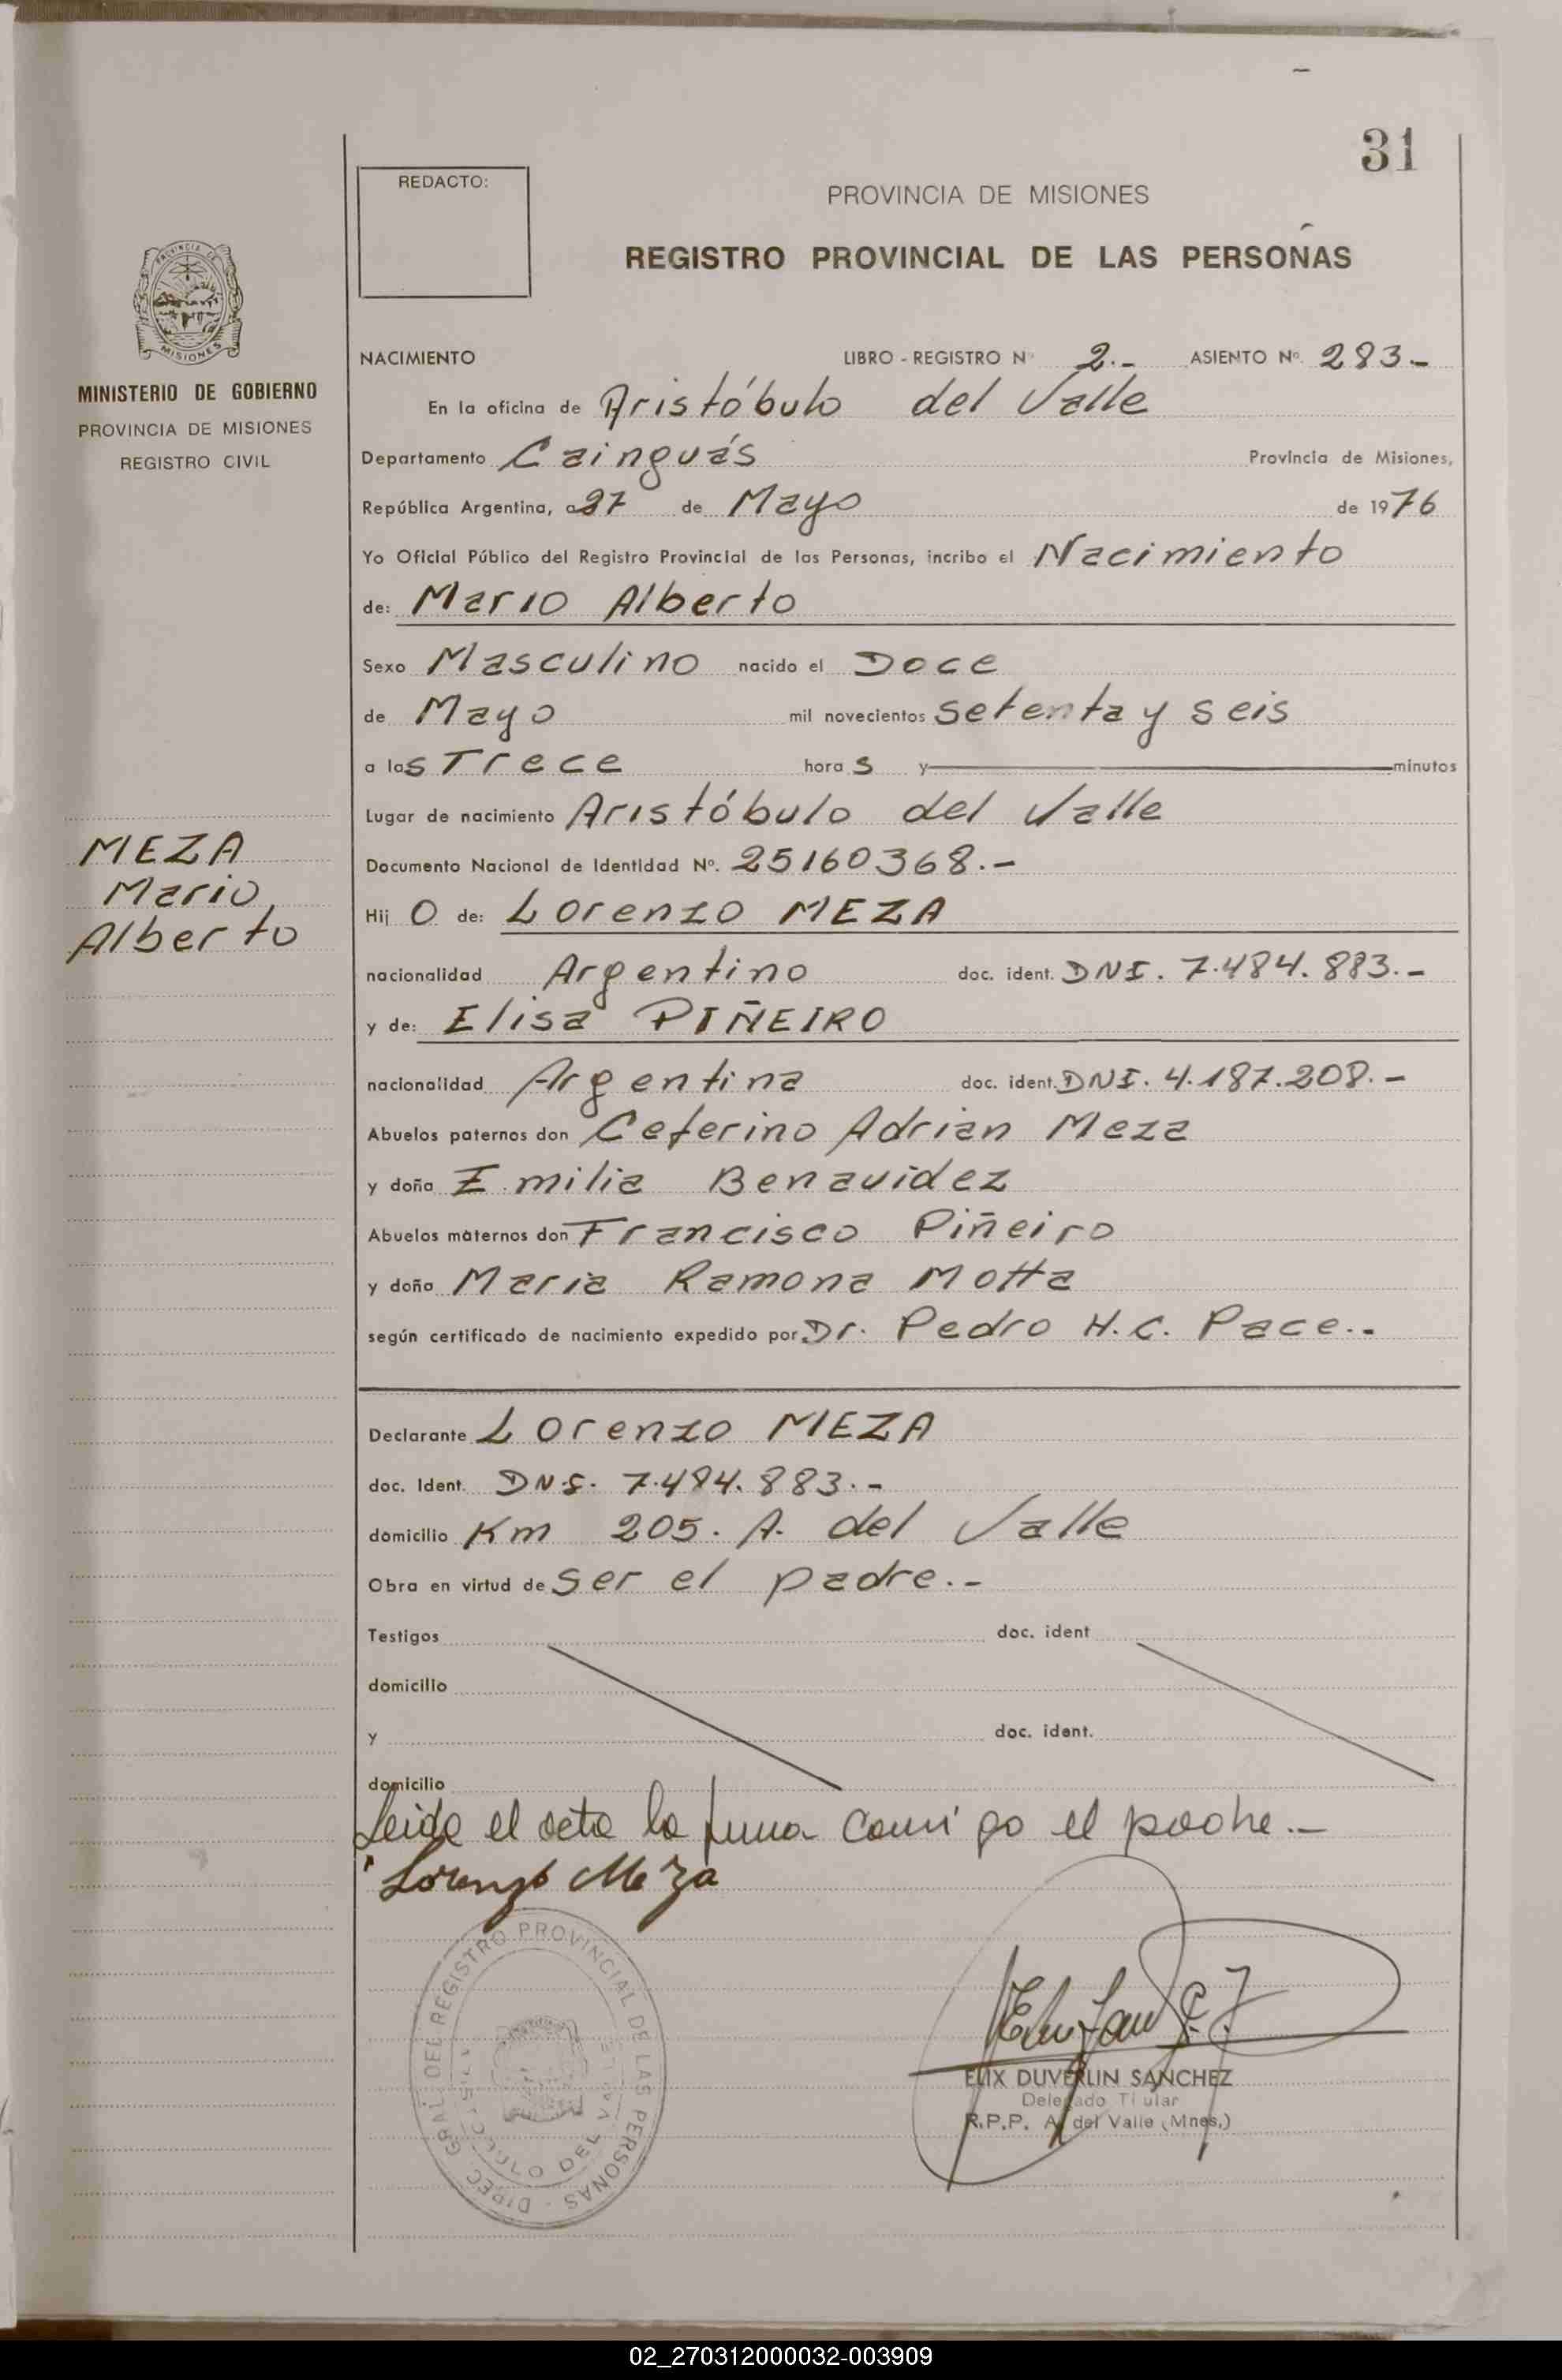 31
REDACTO:
PROVINCIA DE MISIONES
REGISTRO PROVINCIAL DE LAS PERSONAS
PROVINCIA DE MISIONES
MINISTERIO DE GOBIERNO
PROVINCIA DE MISIONES
REGISTRO CIVIL
NACIMIENTO LIBRO - REGISTRO Nº 2.- ASIENTO Nº. 283.-
En la oficina de Aristóbulo del Valle
Departamento Cainguás Provincia de Misiones,
República Argentina, a 27 de Mayo de 1976
Yo Oficial Público del Registro Provincial de las Personas, incribo el Nacimiento
de: Mario Alberto
Sexo Masculino nacido el Doce
de Mayo mil novecientos setenta y seis
a las Trece horas y minutos
Lugar de nacimiento Aristóbulo del Valle
MEZA
Mario
Alberto
Documento Nacional de Identidad Nº. 25160368.-
Hij O de: Lorenzo MEZA
nacionalidad Argentino doc. ident. DNI. 7.484.883.-
y de: Elisa PIÑEIRO
nacionalidad Argentina doc. ident. DNI. 4.187.208.-
Abuelos paternos don Ceferino Adrian Meza
y doña Emilia Benavidez
Abuelos maternos don Francisco Piñeiro
y doña Maria Ramona Motta
según certificado de nacimiento expedido por Dr. Pedro H.C. Pace.-
Declarante Lorenzo MEZA
doc. Ident. DNI. 7.484.883.-
domicilio Km 205. A. del Valle
Obra en virtud de ser el padre.-
Testigos doc. ident
domicilio
y doc. ident.
domicilio
Leida el acta la firma conmigo el padre.-
Lorenzo Meza
DIREC. GRAL. DEL REGISTRO PROVINCIAL DE LAS PERSONAS
ARISTOBULO DEL VALLE
ELIX DUVERLIN SANCHEZ
Delegado Titular
R.P.P. A. del Valle (Mnes.)
02_270312000032-003909